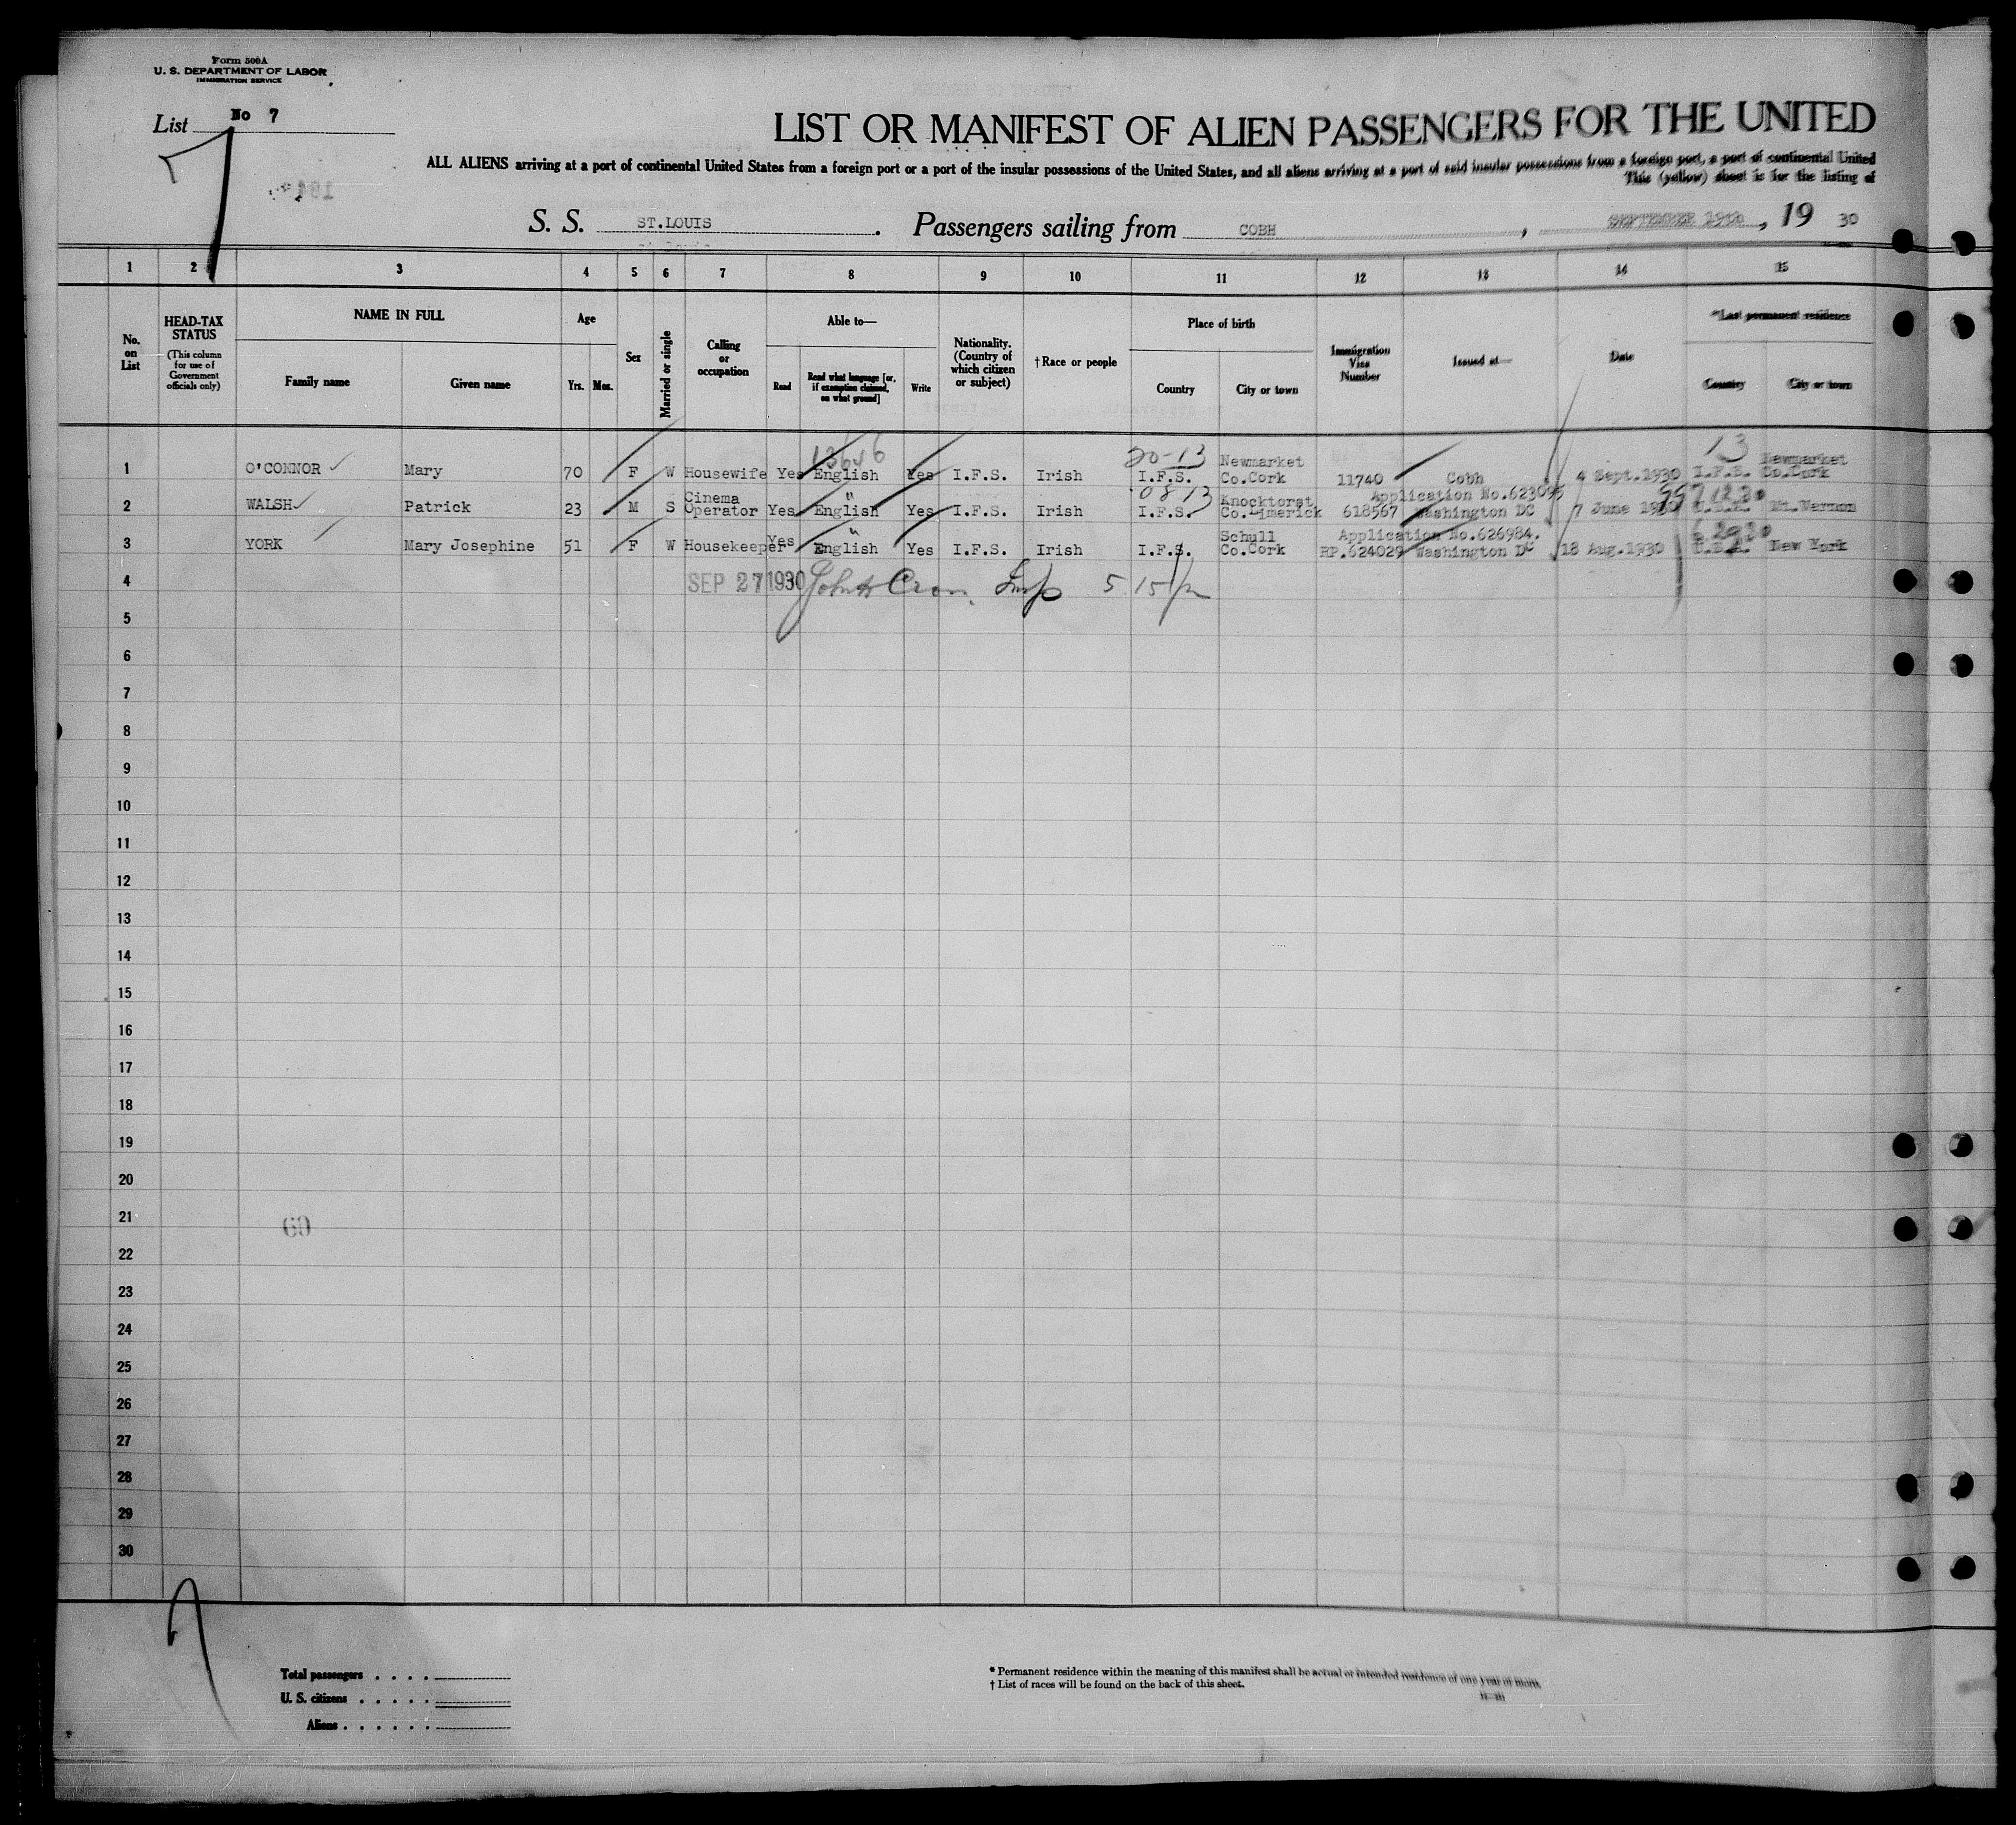 Form 500A
U. S. DEPARTMENT OF LABOR
IMMIGRATION SERVICE
List No 7
7
LIST OR MANIFEST OF ALIEN PASSENGERS FOR THE UNITED
ALL ALIENS arriving at a port of continental United States from a foreign port or a port of the insular possessions of the United States, and all aliens arriving at a port of said insular possessions from a foreign port, a port of continental United
This (yellow) sheet is for the listing of
S. S. ST.LOUIS . Passengers sailing from COBH , SEPTEMBER 19th , 19 30
1 2 3 4 5 6 7 8 9 10 11 12 13 14 15
No. on List
HEAD-TAX STATUS
(This column for use of Government officials only)
NAME IN FULL
Family name Given name
Age
Yrs. Mos.
Sex
Married or single
Calling or occupation
Able to—
Read Read what language [or, if exemption claimed, on what ground] Write
Nationality. (Country of which citizen or subject)
† Race or people
Place of birth
Country City or town
Immigration Visa Number
Issued at—
Date
*Last permanent residence
Country City or town
13646 20-13 13
1 O'CONNOR Mary 70 F W Housewife Yes English Yes I.F.S. Irish I.F.S. Newmarket Co.Cork 11740 Cobh 4 Sept.1930 I.F.S. Newmarket Co.Cork
2 WALSH Patrick 23 M S Cinema Operator Yes English " Yes I.F.S. Irish I.F.S. Co.Limerick 618567 Application No.623095 Washington DC 7 June 1930 U.S.A. Mt.Vernon
3 YORK Mary Josephine 51 F W Housekeeper Yes English " Yes I.F.S. Irish I.F.S. Schull Co.Cork RP.624029 Application No.626984. Washington DC 18 Aug.1930 U.S.A. New York
4 SEP 27 1930 Insp 5 15
5
6
7
8
9
10
11
12
13
14
15
16
17
18
19
20
21
22
23
24
25
26
27
28
29
30
Total passengers . . . .
U. S. citizens . . . . .
Aliens . . . . . .
* Permanent residence within the meaning of this manifest shall be actual or intended residence of one year or more.
† List of races will be found on the back of this sheet.